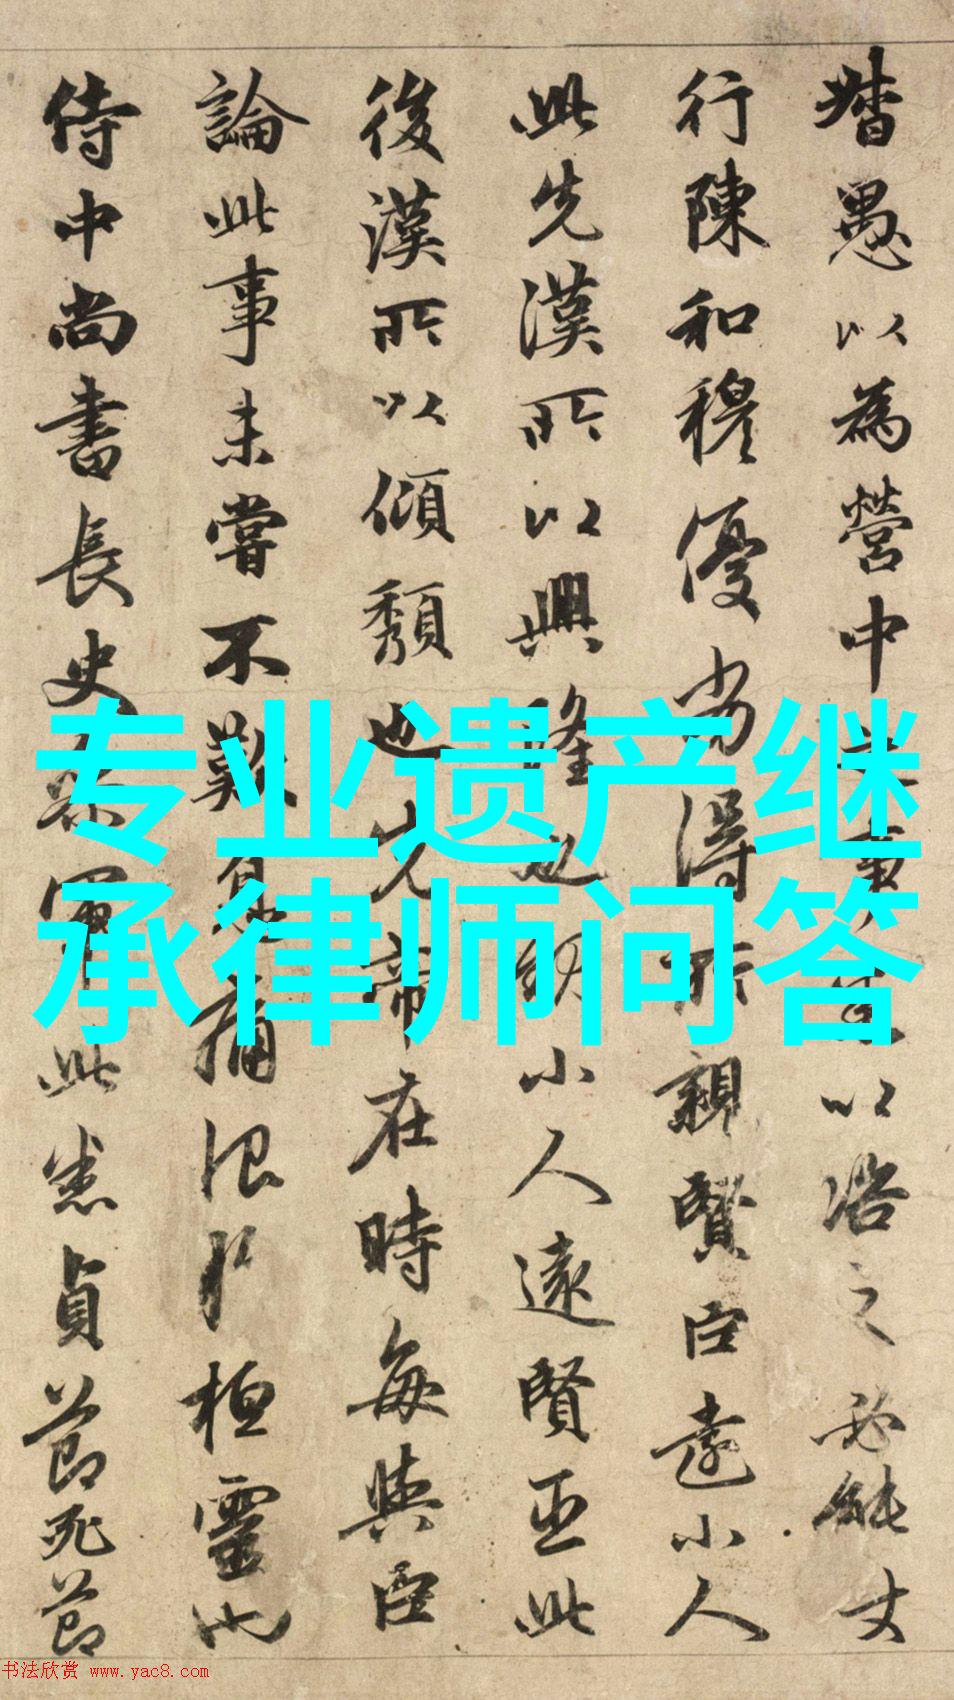 专业遗产继
承律师问答
督愚以為營中之事悉以咨之必能丈
行陳和穆優劣得所親賢臣遠小人
此先漢所以興隆也親小人遠賢臣此
後漢所以傾頹也先帝在時每與臣
論此事未嘗不歎息痛恨於桓靈也
侍中尚書長史參軍此悉貞節死節
书法欣赏 www.yac8.com